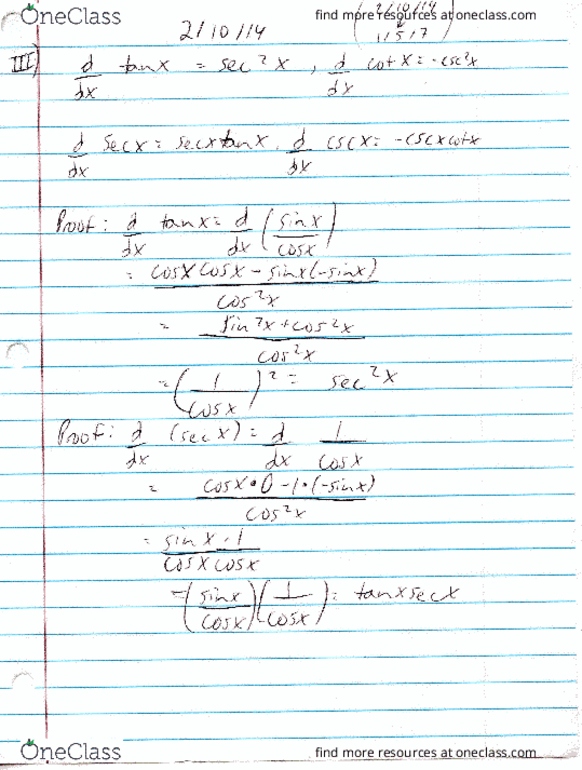 OneClass
find more resources at oneclass.com
2/10/14
2/10/14
III) d/dx tanx = sec²x, d/dx cotx = -csc²x
d/dx secx = secxtanx, d/dx cscx = -cscxcotx
Proof: d/dx tanx = d/dx (sinx/cosx)
= cosxcosx - sinx(-sinx) / cos²x
= sin²x+cos²x / cos²x
= (1/cosx)² = sec²x
Proof: d/dx (secx) = d/dx 1/cosx
= cosx•0 - 1•(-sinx) / cos²x
= sinx•1 / cosxcosx
= (sinx/cosx)(1/cosx) = tanxsecx
OneClass
find more resources at oneclass.com